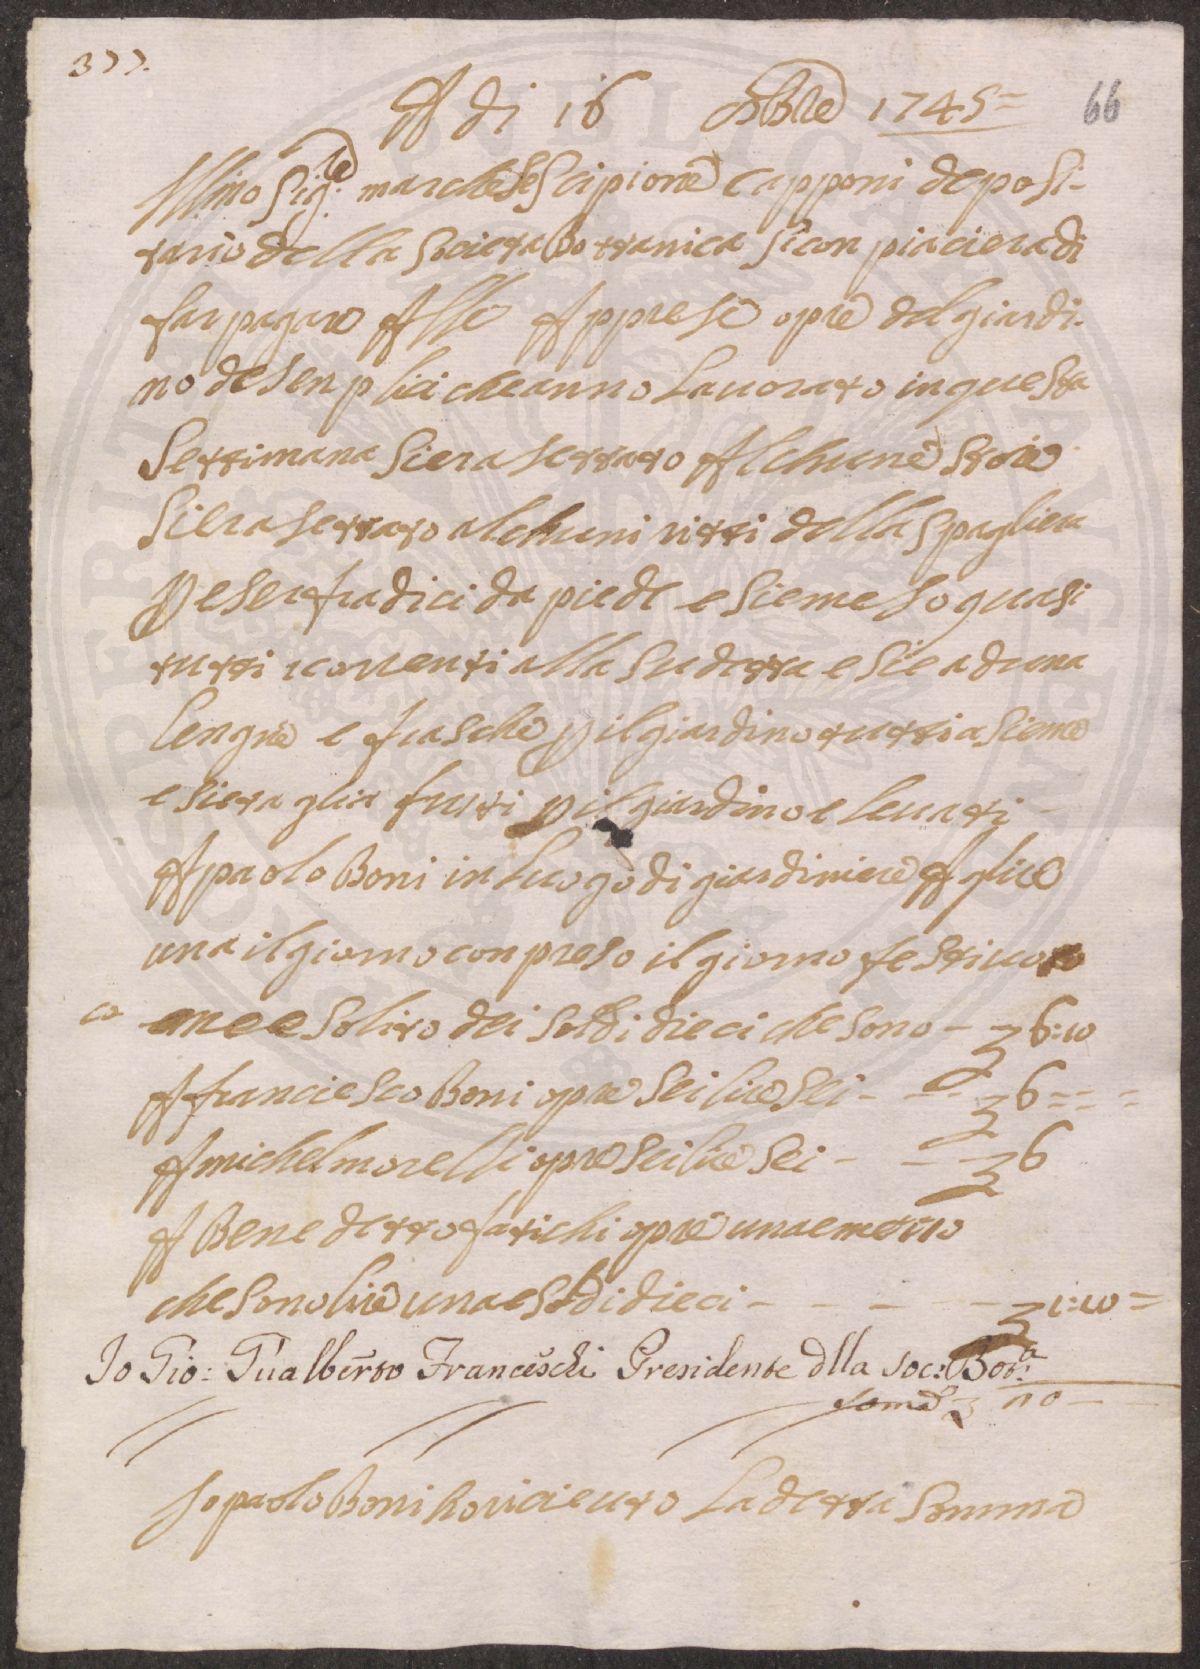 377.
66
A di 16 ottobre 1745=
Illmo Sig:re marchese Scipione Capponi deposi-
tario della Societa Bottanica si conpiaciera di
far pagare Alle Apprese opre del giardi-
no de senplici che anno Lauorato in questa
Settimana si era serrato Alchune stoie
si era serrato alchuni ritti della spagliera
p eser fradici da piede e sie meso quasi
tutti i correnti alla sudetta e sie aduna
lengne e frasche p il giardino tutti asieme
e siera glia frutti p il giardino e leuati
A paolo Boni in Luogo di giardiniere A lire
una il giorno conpreso il giorno festiuo
co solito dei soldi dieci che sono - 3 6:10
A franciesco Boni opre sei lire sei - - - 3 6 = = =
A michel morelli opre sei lire sei - - 3 6
A Benedetto fatichi opre una e mezzo
che sono lire una e soldi dieci - - - - 3 1:10 =
Io Gio: Gualberto Franceschi Presidente dlla Soc: Bot:a
Somā 3 20 -
Io paolo Boni ho riceuto La detta Somma